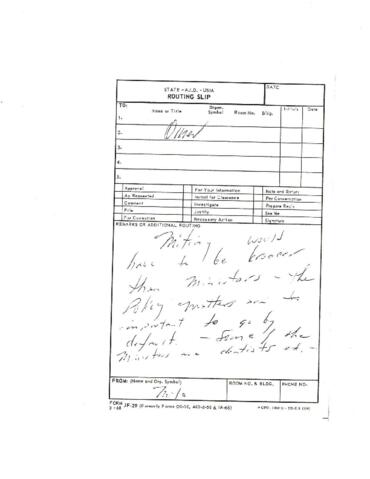 STATE - A.I.D. - USIA
ROUTING SLIP
DATE
TO:
Name or Title
Organ. Symbol
Room No.
Bldg.
Initials
Date
1.
2.
3.
4.
5.
Approval
For Your Information
Note and Return
As Requested
Initial for Clearance
Per Conversation
Comment
Investigate
Prepare Reply
File
Justify
See Me
For Correction
Necessary Action
Signature
REMARKS OR ADDITIONAL ROUTING
would
have to be broader
than Ministers - the
Policy matters are too
important to go by
default. - Some of the
Ministers are dentists etc. -
FROM: (Name and Org. Symbol)
ROOM NO. & BLDG.
PHONE NO.
FORM JF-29 (Formerly Forms